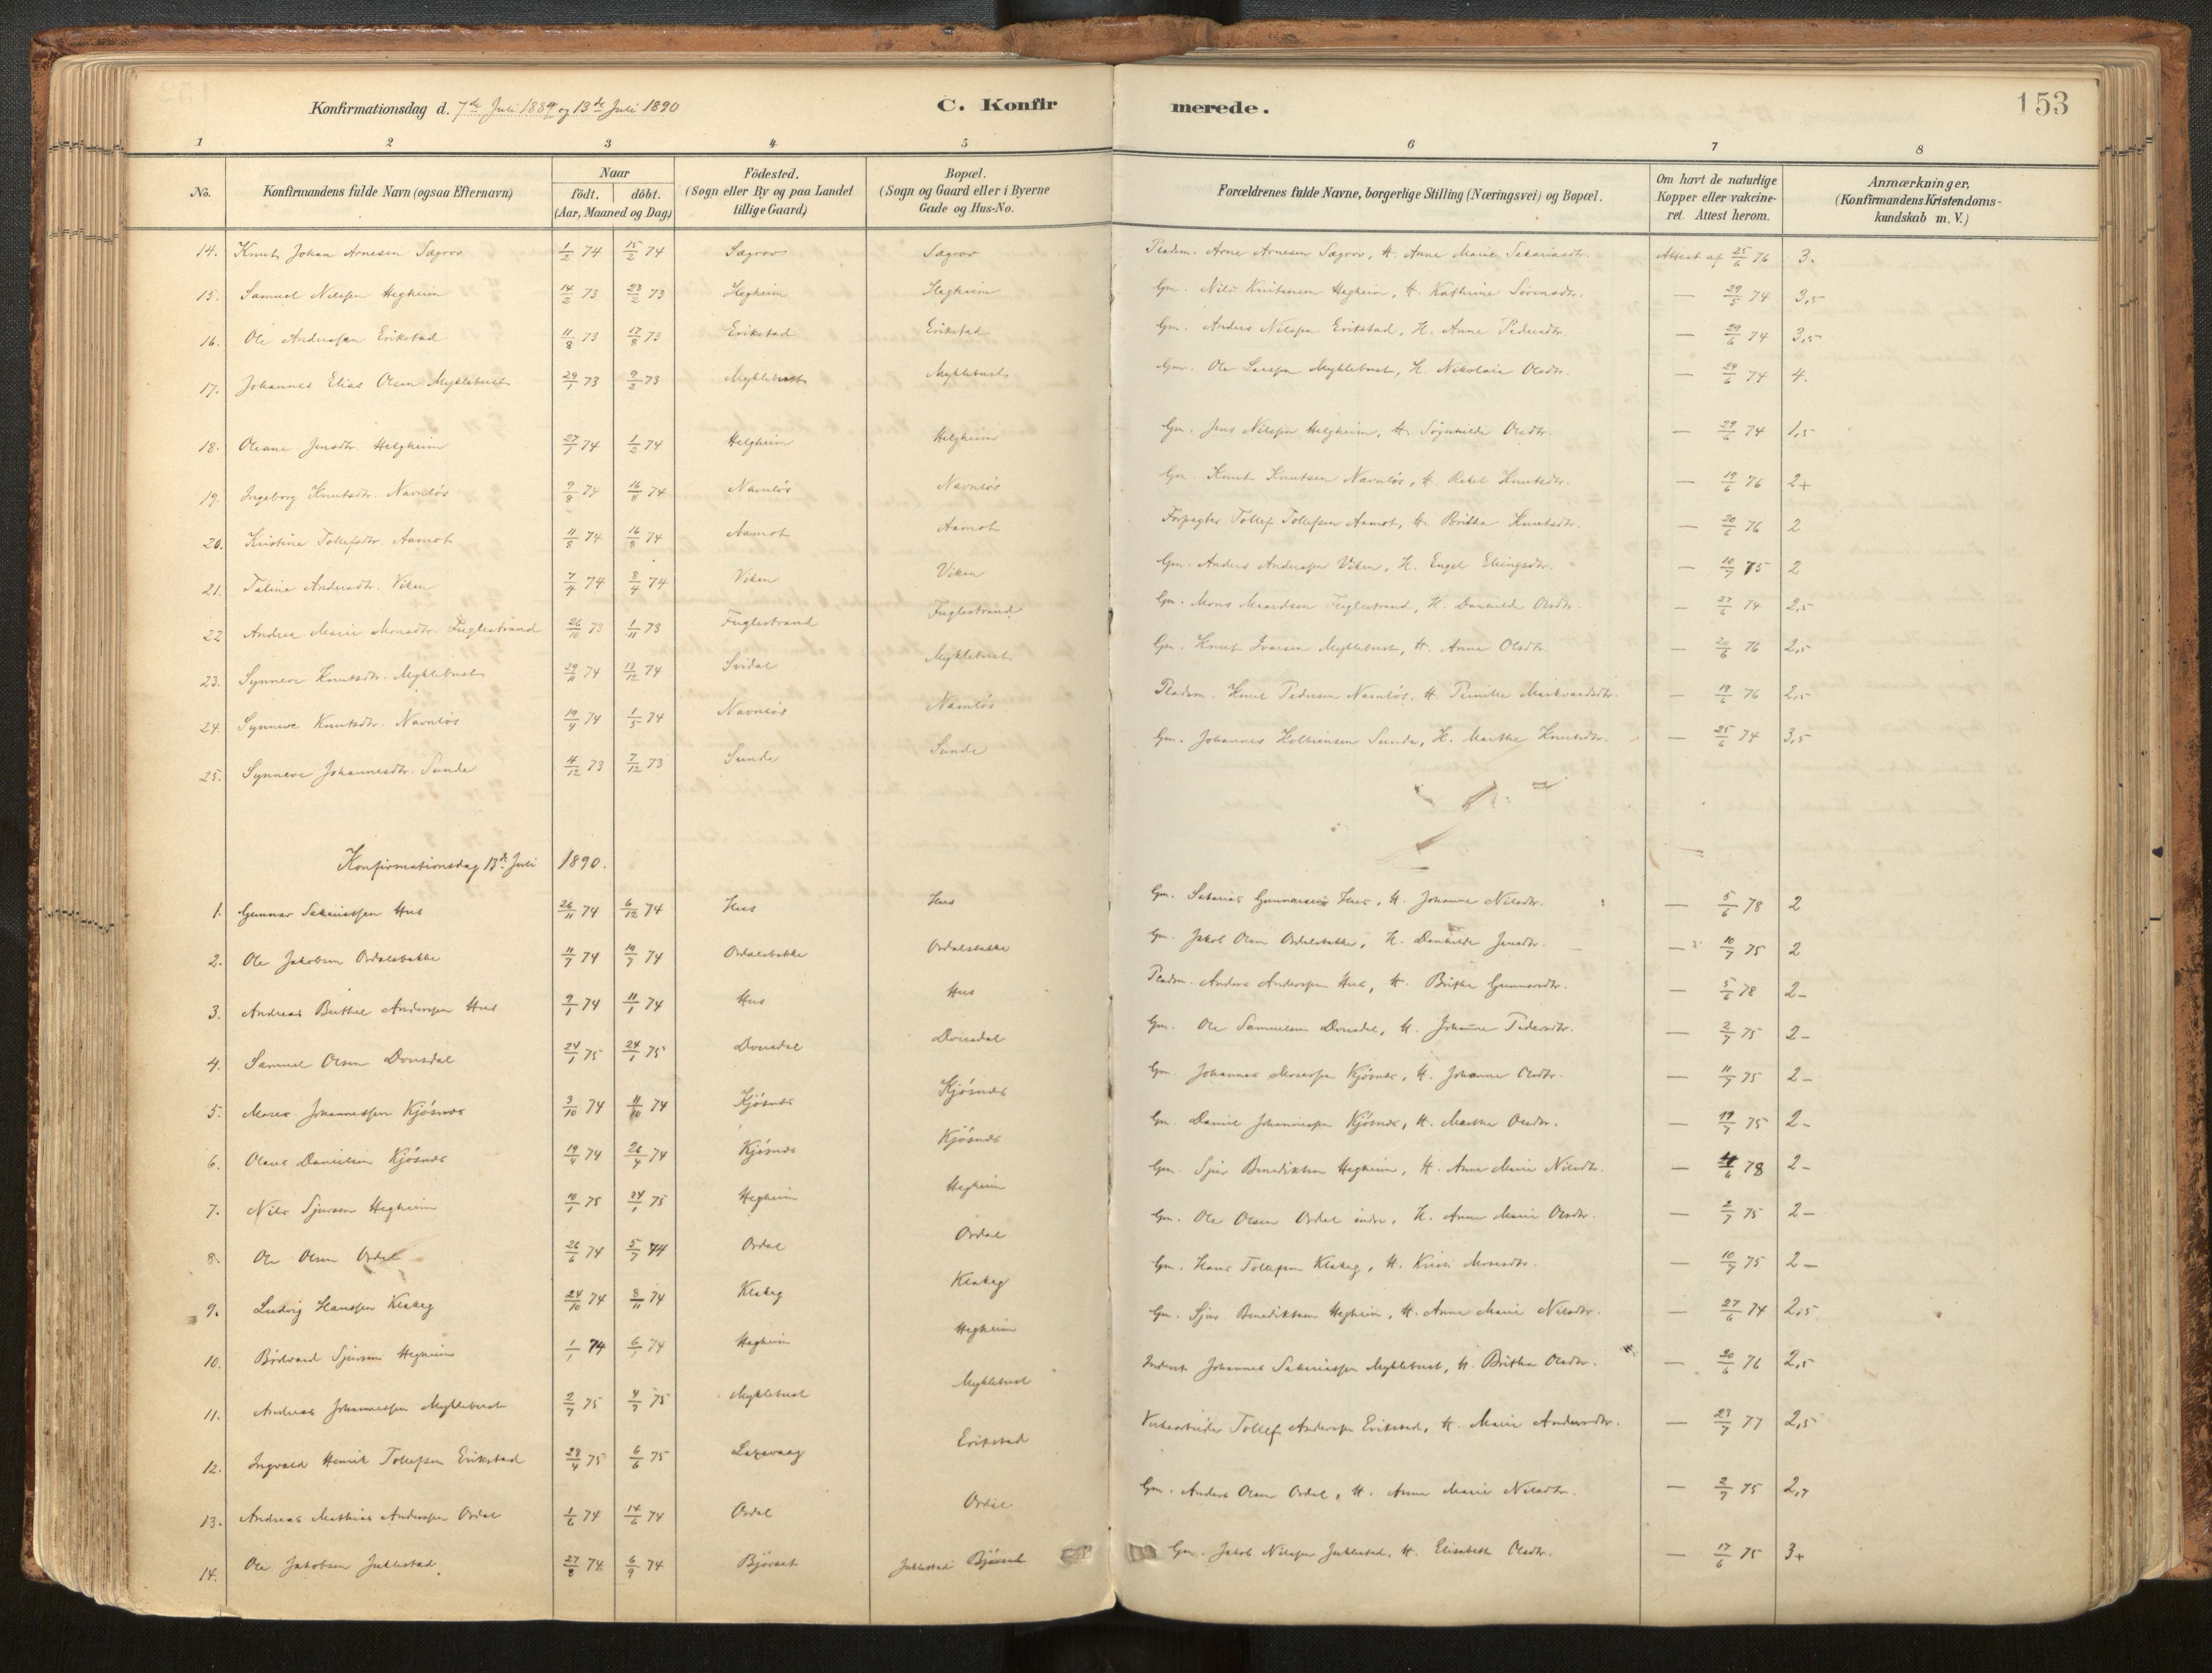 Konfirmationsdag d. 7de Juli 1889 og 13de Juli 1890
C. Konfirmerede.
153
1 2 3 4 5 6 7 8
No. Konfirmandens fulde Navn (ogsaa Efternavn) Naar födt. döbt. (Aar, Maaned og Dag) Födested. (Sogn eller By og paa Landet tillige Gaard) Bopæl. (Sogn og Gaard eller i Byerne Gade og Hus-No. Forældrenes fulde Navne, borgerlige Stilling (Næringsvei) og Bopæl. Om havt de naturlige Kopper eller vakcineret. Attest herom. Anmærkninger, (Konfirmandens Kristendomskundskab m. V.)
14. Knut Johan Arnesen Sægrov 1/2 74 15/2 74 Sægrov Sægrov Pladsm. Arne Arnesen Sægrov, H. Anne Marie Sakariasdtr. Attest af 25/6 76 3.
15. Samuel Nilssen Hegheim 14/2 73 23/2 73 Hegheim Hegheim Gm. Nils Kristensen Hegheim, H. Kathrine Sørensdtr. — 29/5 74 3,5
16. Ole Anderssen Erikstad 11/8 73 17/8 73 Erikstad Erikstad Gm. Anders Nilssen Erikstad, H. Anne Pedersdtr. — 29/6 74 3,5
17. Johannes Elias Olsen Myklebust 29/1 73 9/2 73 Myklebust Myklebust Gm. Ole Larssen Myklebust, H. Nikolaia Olsdtr. — 29/6 74 4.
18. Oleane Jensdtr. Helgheim 27/1 74 1/2 74 Helgheim Helgheim Gm. Jens Nilssen Helgheim, H. Olsdtr. — 29/6 74 1,5
19. Ingeborg Knutsdtr. Navnløs 9/8 74 16/8 74 Navnløs Navnløs Gm. Knut Knutsen Navnløs, H. Rakel Knutsdtr. — 19/6 76 2+
20. Kristine Tollefsdtr. Aamot 11/8 74 16/8 74 Aamot Aamot Forpagter Tollef Tollefsen Aamot, H. Britha Knutsdtr. — 20/6 76 2
21. Taline Andersdtr. Viken 7/4 74 8/4 74 Viken Viken Gm. Anders Anderssen Viken, H. Engel Elingsdtr. — 10/7 75 2
22 Andrea Marie Monsdtr. Fuglestrand 26/10 73 1/11 73 Fuglestrand Fuglestrand Gm. Mons Fuglestrand, H. Danhilde Olsdtr. — 27/6 74 2,5
23. Synneve Knutsdtr. Myklebust 29/11 74 13/12 74 Svidal Myklebust Gm. Knut Ivarsen Myklebust, H. Anna Olsdtr. — 20/6 76 2,5
24. Synneve Knutsdtr. Navnløs 19/4 74 1/5 74 Navnløs Navnløs Pladsm. Knut Pedersen Navnløs, H. Pernille Markvardsdtr. — 19/6 76 2,5
25. Synneve Johannesdtr. Sunde 4/12 73 7/12 73 Sunde Sunde Gm. Johannes Kolbeinsen Sunde, H. Marthe Knutsdtr. — 25/6 74 3,5
Konfirmationsdag 13de Juli 1890.
1. Gunnar Sakariassen Hus 26/11 74 6/12 74 Hus Hus Gm. Sakarias Gunnarsen Hus, H. Johanne Nilsdtr. — 5/6 78 2
2. Ole Jakobsen Ordalsbakke 11/7 74 19/7 74 Ordalsbakke Ordalsbakke Gm. Jakob Olsen Ordalsbakke, H. Danhilde Jensdtr. — 10/7 75 2
3. Andreas Berthel Anderssen Hus 9/1 74 11/1 74 Hus Hus Pladsm. Anders Anderssen Hus, H. Brithe Gunnarsdtr. — 5/6 78 2-
4. Samuel Olsen Dvergsdal 24/1 75 24/1 75 Gm. Ole Samuelsen H. Johanne Pedersdtr. — 2/7 75 2-
5. Moses Johannessen Kjösnes 3/10 74 11/10 74 Kjösnes Kjösnes Gm. Johannes Mosessen Kjösnes, H. Johanne Olsdtr. — 11/7 75 2-
6. Olaus Danielsen Kjösnes 19/4 74 26/4 74 Kjösnes Kjösnes Gm. Daniel Johannessen Kjösnes, H. Marthe Olsdtr. — 17/7 75 2-
7. Nils Sjursen Hegheim 10/1 75 24/1 75 Hegheim Hegheim Gm. Sjur Benediktsen Hegheim, H. Anne Marie Nilsdtr. — 4/6 78 2-
8. Ole Olsen Ordal 26/6 74 5/7 74 Ordal Ordal Gm. Ole Olsen Ordal indre, H. Anne Marie Olsdtr. — 2/7 75 2-
9. Ludvig Hanssen Klakeg 24/10 74 8/11 74 Klakeg Klakeg Gm. Hans Tollefsen Klakeg, H. Kristi Mosesdtr. — 10/7 75 2-
10. Bödvard Sjursen Hegheim 1/1 74 6/1 74 Hegheim Hegheim Gm. Sjur Benediktsen Hegheim, H. Anne Marie Nilsdtr. — 27/6 74 2,5
11. Andreas Johannessen Myklebust 2/7 75 4/7 75 Myklebust Myklebust Inderst Johannes Sakariassen Myklebust, H. Britha Olsdtr. — 20/6 76 2,5
12. Ingvald Henrik Tollefsen Erikstad 28/4 75 6/6 75 Laxevaag Erikstad Tollef Anderssen Erikstad, H. Marie Andersdtr. — 23/7 77 2,5
13. Andreas Mathias Anderssen Ordal 1/6 74 14/6 74 Ordal Ordal Gm. Anders Olsen Ordal, H. Anne Marie Nilsdtr. — 2/7 75 2,7
14. Ole Jakobsen Juklestad. 27/8 74 6/9 74 Bjørset Juklestad Bjørset Gm. Jakob Nilssen Juklestad, H. Elisabeth Olsdtr. — 17/6 75 3+